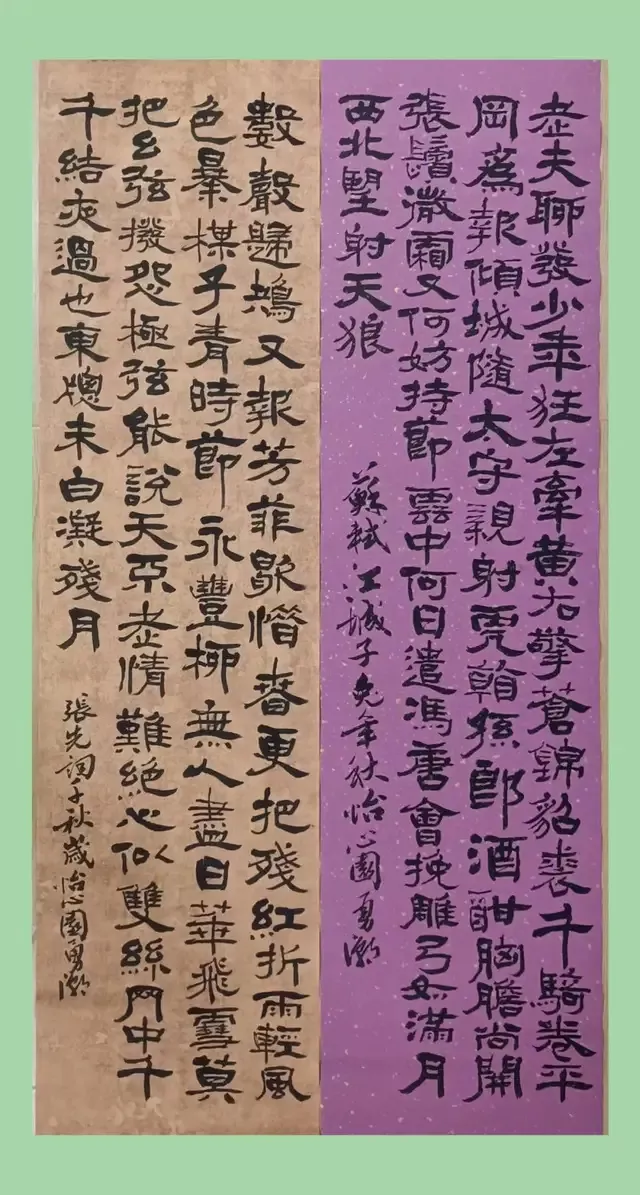 老夫聊發少年狂左牽黃右擎蒼錦貂裘千騎卷平
岡爲報傾城隨太守親射虎看孫郎酒酣胸膽尚開
張鬢微霜又何妨持節雲中何日遣馮唐會挽雕弓如滿月
西北望射天狼
蘇軾江城子兔年秋怡心園勇
數聲歸鴂又報芳菲歇惜春更把殘紅折雨輕風
色暴梅子青時節永豐柳無人盡日華飛雪莫
把幺弦撥怨極弦能說天不老情難絕心似雙絲网中千
千結夜過也東窗未白凝殘月
張先詞千秋歲怡心園勇